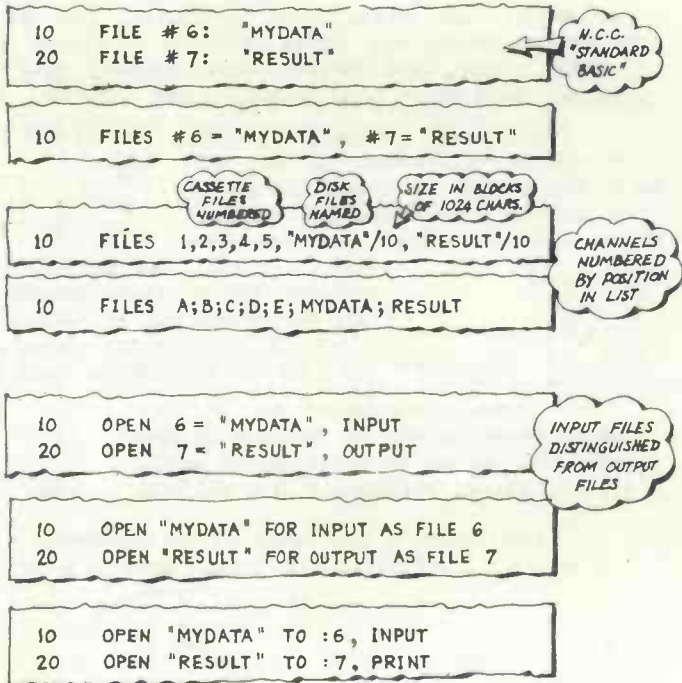 10 FILE #6: "MYDATA"
20 FILE #7: "RESULT"
N.C.C.
"STANDARD
BASIC"
10 FILES #6 = "MYDATA", #7= "RESULT"
CASSETTE
FILES
NUMBERED
DISK
FILES
NAMED
SIZE IN BLOCKS
OF 1024 CHARS.
10 FILES 1,2,3,4,5, "MYDATA"/10, "RESULT"/10
CHANNELS
NUMBERED
BY POSITION
IN LIST
10 FILES A;B;C;D;E; MYDATA; RESULT
10 OPEN 6 = "MYDATA", INPUT
20 OPEN 7 = "RESULT", OUTPUT
INPUT FILES
DISTINGUISHED
FROM OUTPUT
FILES
10 OPEN "MYDATA" FOR INPUT AS FILE 6
20 OPEN "RESULT" FOR OUTPUT AS FILE 7
10 OPEN "MYDATA" TO :6, INPUT
20 OPEN "RESULT" TO :7, PRINT